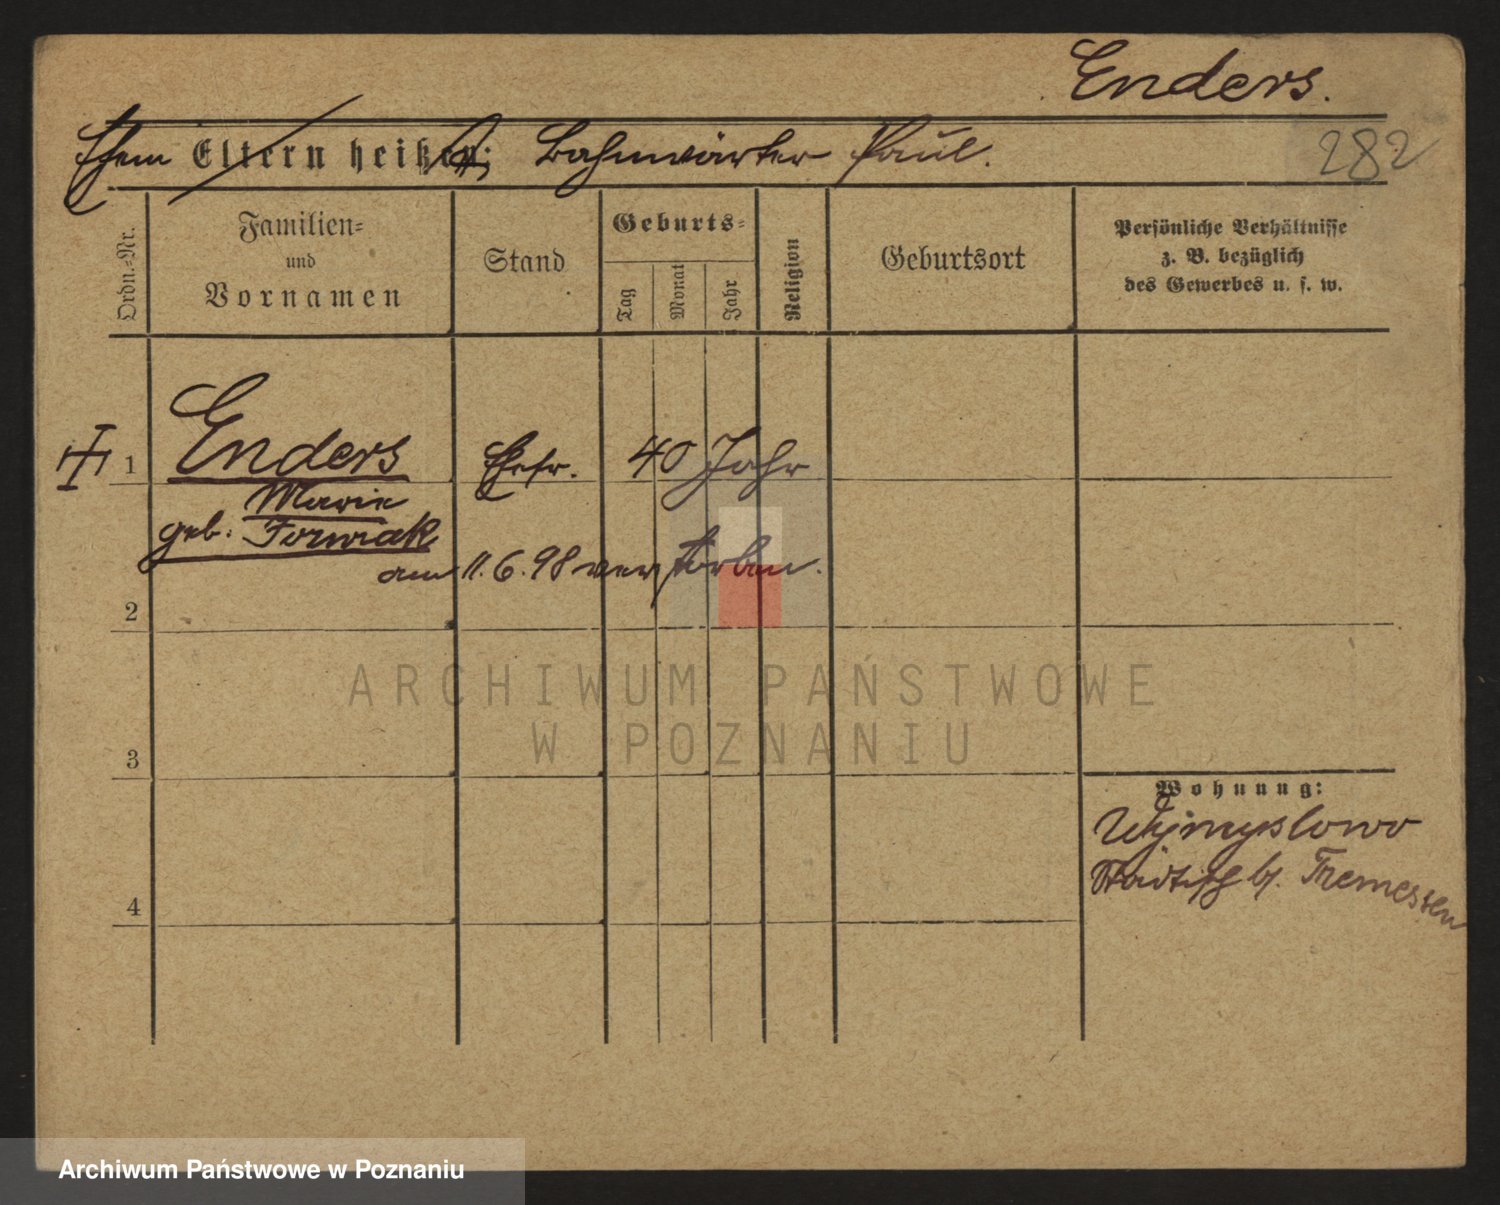 Enders.
Ehem Eltern heißen: Bahnwärter Paul.
282
Ordn.-Nr.
Familien-
und
Vornamen
Stand
Geburts-
Tag
Monat
Jahr
Religion
Geburtsort
Persönliche Verhältnisse
z. B. bezüglich
des Gewerbes u. s. w.
1 Enders Ehefr. 40 Jahr
Marie
geb.
am 11.6.98 verstorben.
2
3
4
Wohnung:
Wymyslowo
Städtisch b/. Tremessen
ARCHIWUM PAŃSTWOWE
W POZNANIU
Archiwum Państwowe w Poznaniu